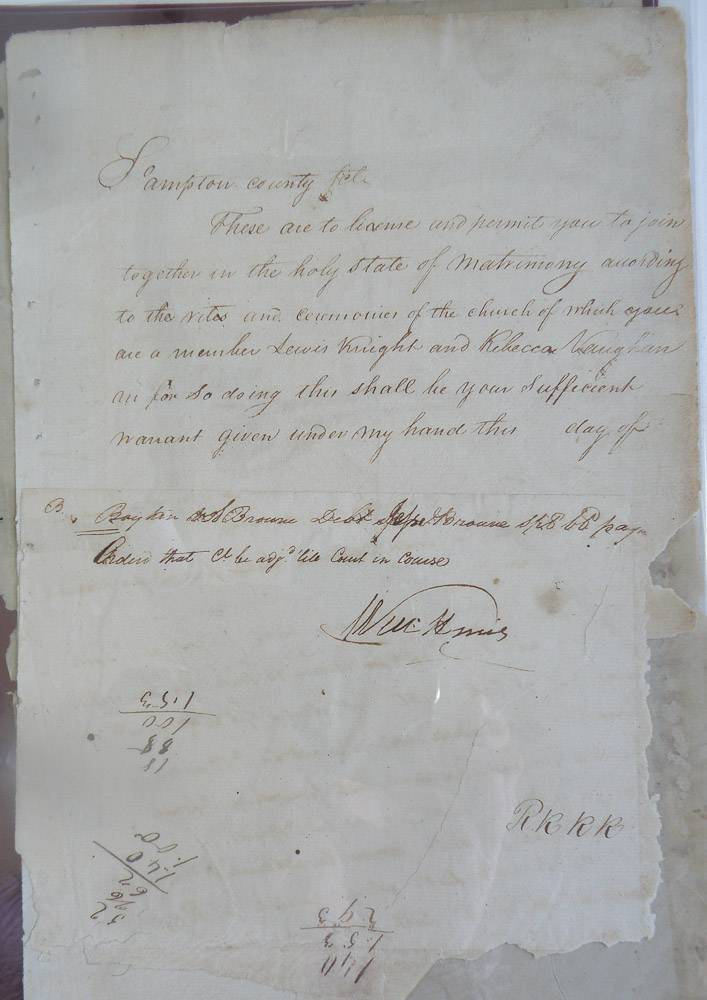 Sampton county
These are to license and permit you to join
together in the holy state of Matrimony according
to the rites and ceremonies of the church of which you
are a member Lewis Knight and Rebecca Vaughan
for So doing this shall be your Sufficient
warrant given under my hand this day of
B. Boykin Browne Debt Browne
Order that be adjd till Court in Course
RKKK
18
88
100
62
1.40
1.90
140
1.53
293